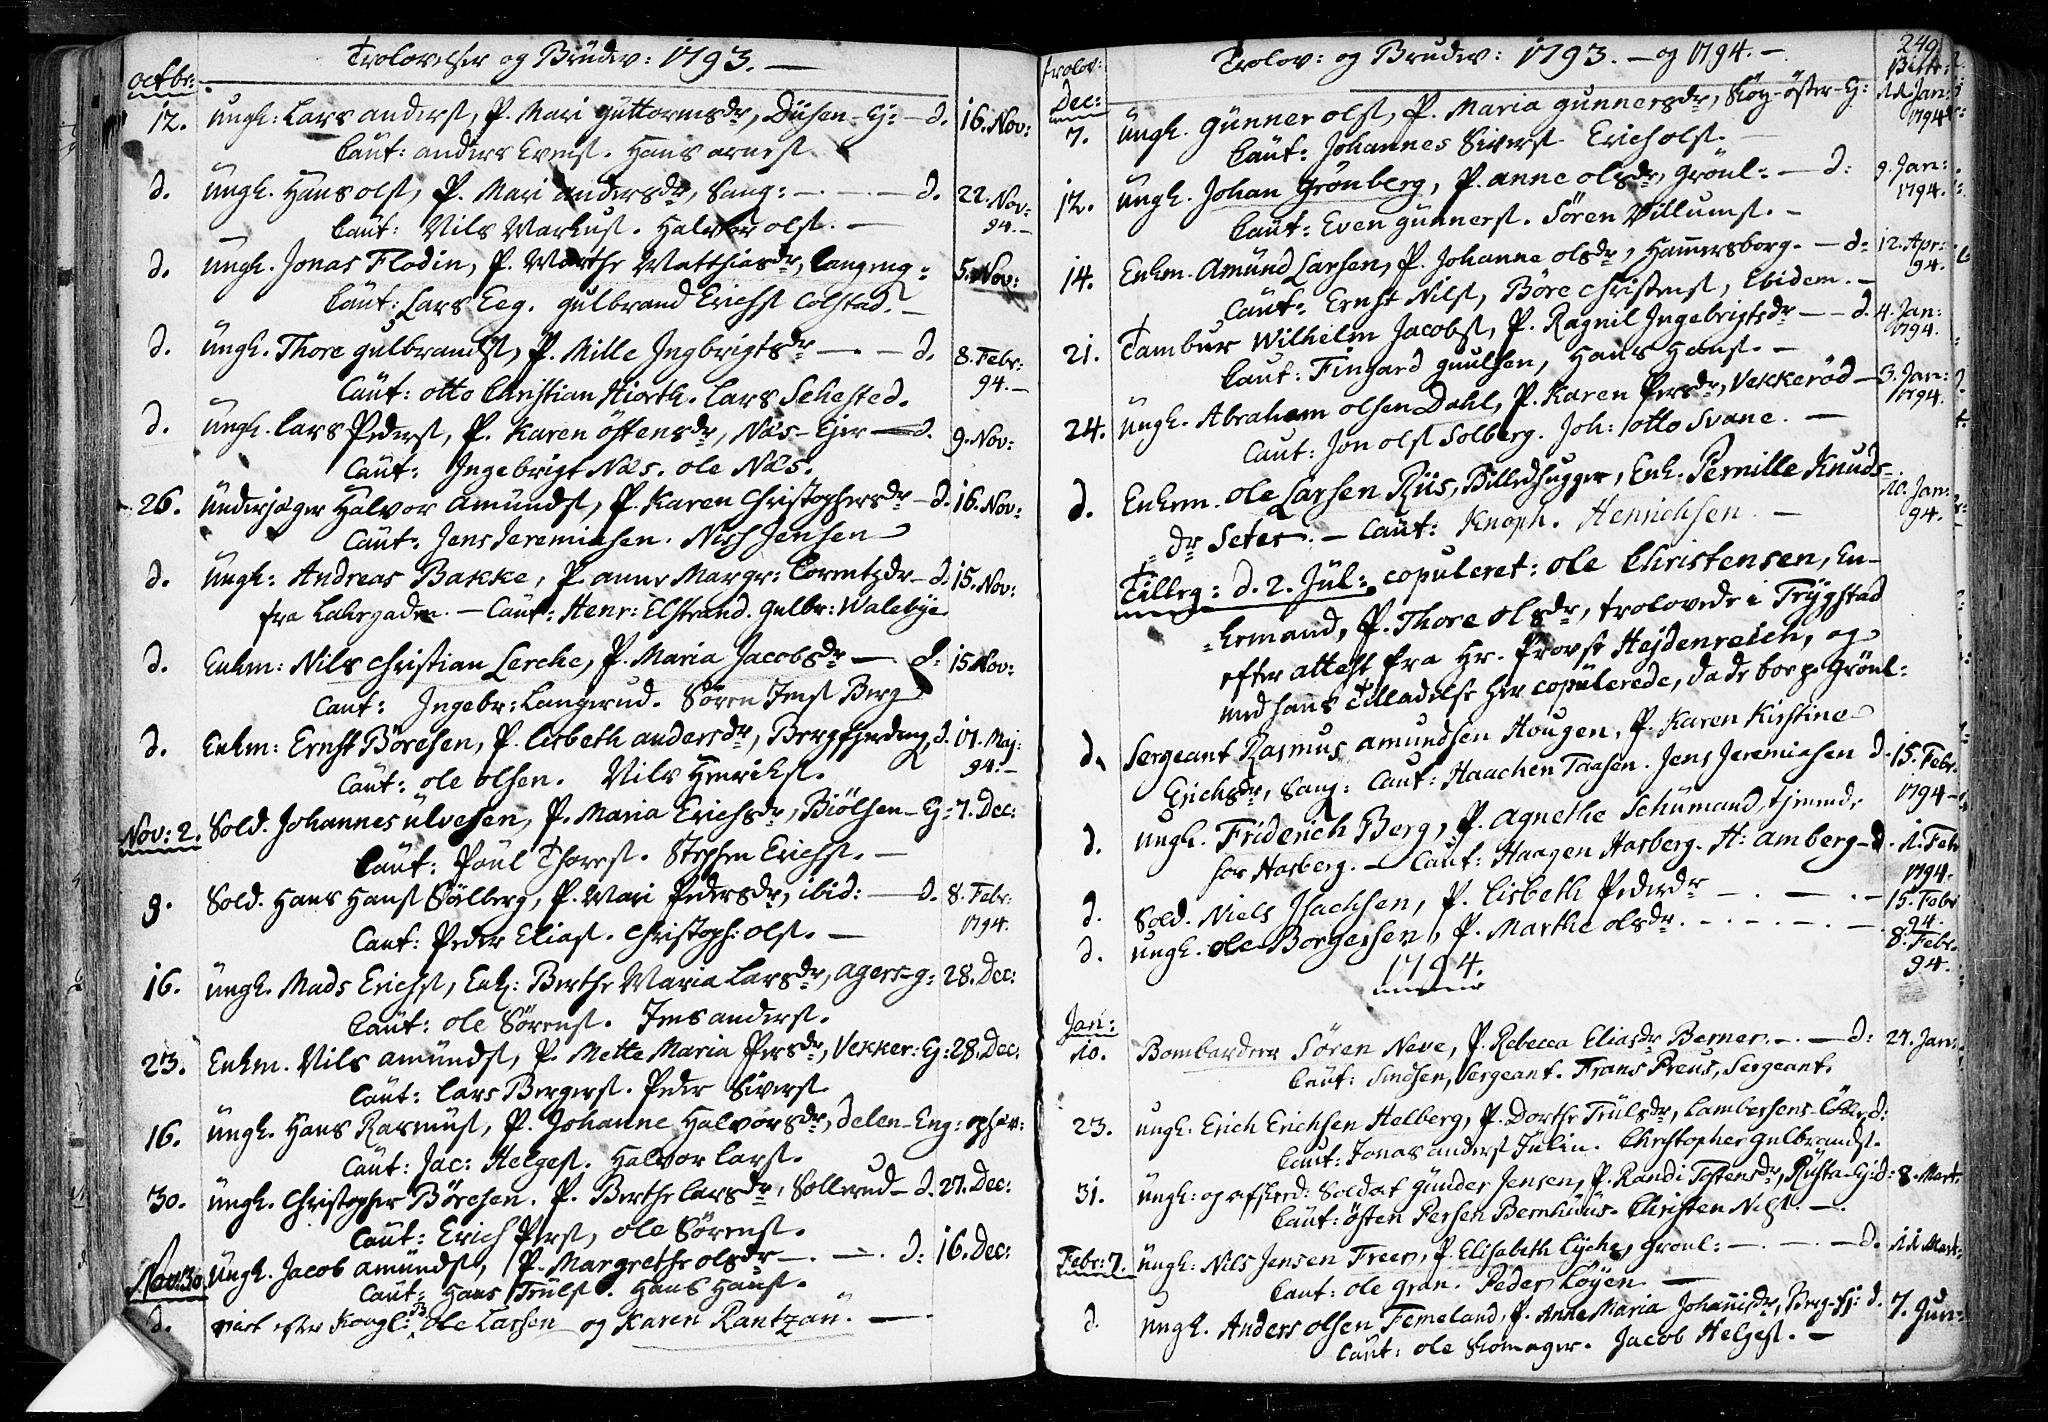 Trolovelser og Brüder: 1793. —
octbr:
12. üngk: Lars anderst, P. Mari güttormsdr, Düsen-Ej: — d. 16. Nov:
Caüt: anders Evenst. Hans arnest
d. üngk. Hans olst, P. Mari andersdr, Saug: — . — . — d. 22. Nov: 94. —
Caüt: Nils Markust. Halvor olst. —
d. üngk. Jonas Flodin, P. Marthe Matthiasdr, Langeng: 5. Nov:
Caüt: Lars Eeg. gulbrand Erichst Colstad. —
d. üngk. Thore gulbrandst, P. Mille Ingbrigtsdr — . — d. 8. Febr: 94. —
Caüt: otto Christian Hiorth. Lars Sehested.
d. üngk. Lars Pederst, P. Karen östensdr, Næs-Ejer — d. 9. Nov:
Caüt: Ingebrigt Næs. ole Næs.
26. ünderjæger Halvor Amündst, P. Karen Christophersdr — d. 16. Nov:
Caüt: Jens Jeremiasen. Niss Jensen
d. üngk: Andreas Bakke, P. anne Margr: Lorentzdr — d. 15. Nov:
fra Lakegaden. — Caüt: Henr: Elstrand. Gulbr: Walebye
d. Enkm: Nils Christian Lerche, P. Maria Jacobsdr — d: 15 Nov:
Caut: Ingebr: Langerud. Sören Jenst Berg
d. Enkm: Ernst Böresen, P. Lisbeth andersdr, Bergfjerding, d. 01. Maj: 94. —
Caüt: ole olsen. Nils Henrikst.
Nov: 2. Sold. Johannes ülvesen, P. Maria Erichsdr, Biölsen-Ej: 7. Dec:
Caüt: Poül Thorest. Stephen Erichst. —
9. Sold. Hans Hanst Sölberg, P. Mari Pedersdr, ibid: — d. 8. Febr: 1794.
Caut: Peder Eliast. Christoph: olst. —
16. üngk. Mads Erichst, Enk: Berthe Maria Larsdr, agers-g: 28. Dec:
Caüt: ole Sörenst. Jens anderst.
23. Enkm. Nils amündst, P. Mette Maria Persdr, Vekker: Ej: 28. Dec:
Caüt: Lars Bergerst. Peder Siverst.
16. üngk. Hans Rasmust, P. Johanne Halvorsdr, delen-Eng: ophær:
Caüt: Jac: Helgest. Halvor Larst.
30. üngk. Christopher Böresen. P. Berthe Larsdr, Sollerud — d. 27. Dec:
Caüt: Erich Perst, ole Sörenst.
Nov: 30 üngk. Jacob amündst, P. Margrethe olsdr — . — . d: 16. Dec:
Caüt: Hans Trülst. Hans Hanst.
d. viet efter Kongl: B. Ole Larsen og Karen Rantzau. —
249.
Trolov: og Brüder: 1793. — og 1794. —
trolov:
Dec:
7. üngk. Günner olst, P. Maria gunnersdr, Skög-öster-Ej: 11. Jan: 1794
Caüt: Johannes Siverst. Erich olst. —
12. üngk. Johan Grönberg, P. anne olsdr, Grönl: — d: 9. Jan: 1794.
Caüt: Even gunnerst. Sören Villumst. —
14. Enkm. Amünd Larsen, P. Johanne olsdr, Hamersborg. — d: 12. Apr: 94.
Caüt: Ernst Nilst, Böre Christenst, Ibidem. —
21. Tambur Wilhelm Jacobst, P. Ragnil Ingebrigtsdr — — d. 4. Jan: 1794.
Caut: Fingard guulsen, Hans Hanst. —
24. üngk. Abraham olsen Dahl, P. Karen Persdr, Vekkeröd — 3. Jan: 1794.
Caut: Jon olst Solberg. Joh: otto Svane. —
d. Enkem. ole Larsen Riis, Billedhugger, Enk. Pernille Knuds-
dr Seter. — Caüt: Knoph. Henrichsen. — 10. Jan: 94.
Tillæg: d. 2. Jül: copuleret: ole Christensen, En-
kemand, P. Thore olsdr, trolovede i Trygstad
efter attest fra Hr. Provst Hejdenreich, og
med hans Tilladelse her copülerede, da de boe p. Grönl:
d. Sergeant Rasmus amundsen Hougen, P. Karen Kirstine
Erichsdr, Saug: Caut: Haachen Taasen. Jens Jeremiasen d. 15. Febr. 1794 —
d. üngk. Friderich Berg, P. Agnethe Schümand, tjenende
hos Hasberg. — Caut: Haagen Hasberg. H: amberg — d. 1. Febr 1794.
d. Sold. Niels Isachsen, P. Lisbeth Pedersdr — . — . — 15. Febr 94.
d. üngk. ole Borgersen, P. Marthe olsdr. — . — . — 8. Febr. 94.
1794.
Jan:
10. Bombardeer Sören Neve, P. Rebecca Eliasdr Berner. — . — d: 24. Jan:
Caüt: Smdsen, Sergeant. Frans Preus, Sergeant.
23. üngk. Erich Erichsen Helberg, P. Dorthe Trülsdr, Lambersens-Löke, d:
Caut: Jonas anderst Jülin. Christopher gulbrandst.
31. üngk: og afskeed: Soldat günder Jensen, P. Randi Tostensdr, Rüsta-Ej: d: 8. Mart:
Caüt: östen Persen Bernhüüs. Christen Nilst. — .
Febr: 7. üngk: Nils Jensen Freer, P. Elisabeth Lyche, Grönl: — . — . — d. 11. Mart:
Caut: ole gran. Peder Löyen —
d. üngk. Anders olsen Femeland, P. Anne Maria Johanisdr, Berg-fj: d. 7. Jun:
Caüt: ole Skomager. Jacob Helgest. —